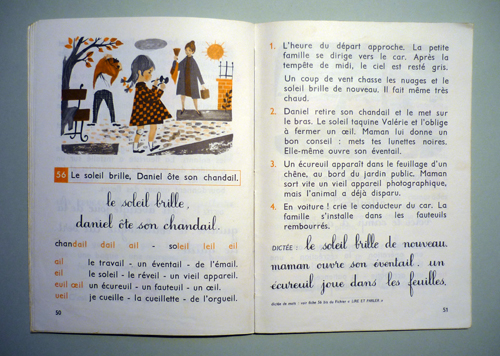 56 Le soleil brille, Daniel ôte son chandail.
le soleil brille,
daniel ôte son chandail.
chandail dail ail - soleil leil eil
ail le travail - un éventail - de l'émail.
eil le soleil - le réveil - un vieil appareil.
euil œil un écureuil - un fauteuil - un œil.
ueil je cueille - la cueillette - de l'orgueil.
50
1. L'heure du départ approche. La petite
famille se dirige vers le car. Après la
tempête de midi, le ciel est resté gris.
Un coup de vent chasse les nuages et le
soleil brille de nouveau. Il fait même très
chaud.
2. Daniel retire son chandail et le met sur
le bras. Le soleil taquine Valérie et l'oblige
à fermer un œil. Maman lui donne un
bon conseil : mets tes lunettes noires.
Elle-même ouvre son éventail.
3. Un écureuil apparaît dans le feuillage d'un
chêne, au bord du jardin public. Maman
sort vite un vieil appareil photographique,
mais l'animal a déjà disparu.
4. En voiture ! crie le conducteur du car. La
famille s'installe dans les fauteuils
rembourrés.
DICTÉE : le soleil brille de nouveau.
maman ouvre son éventail. un
écureuil joue dans les feuilles.
dictée de mots : voir fiche 56 bis du Fichier « LIRE ET PARLER »
51